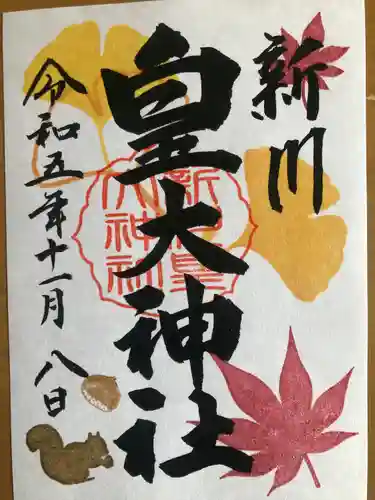 新川
皇大神社
令和五年十一月八日
新川皇
大神社